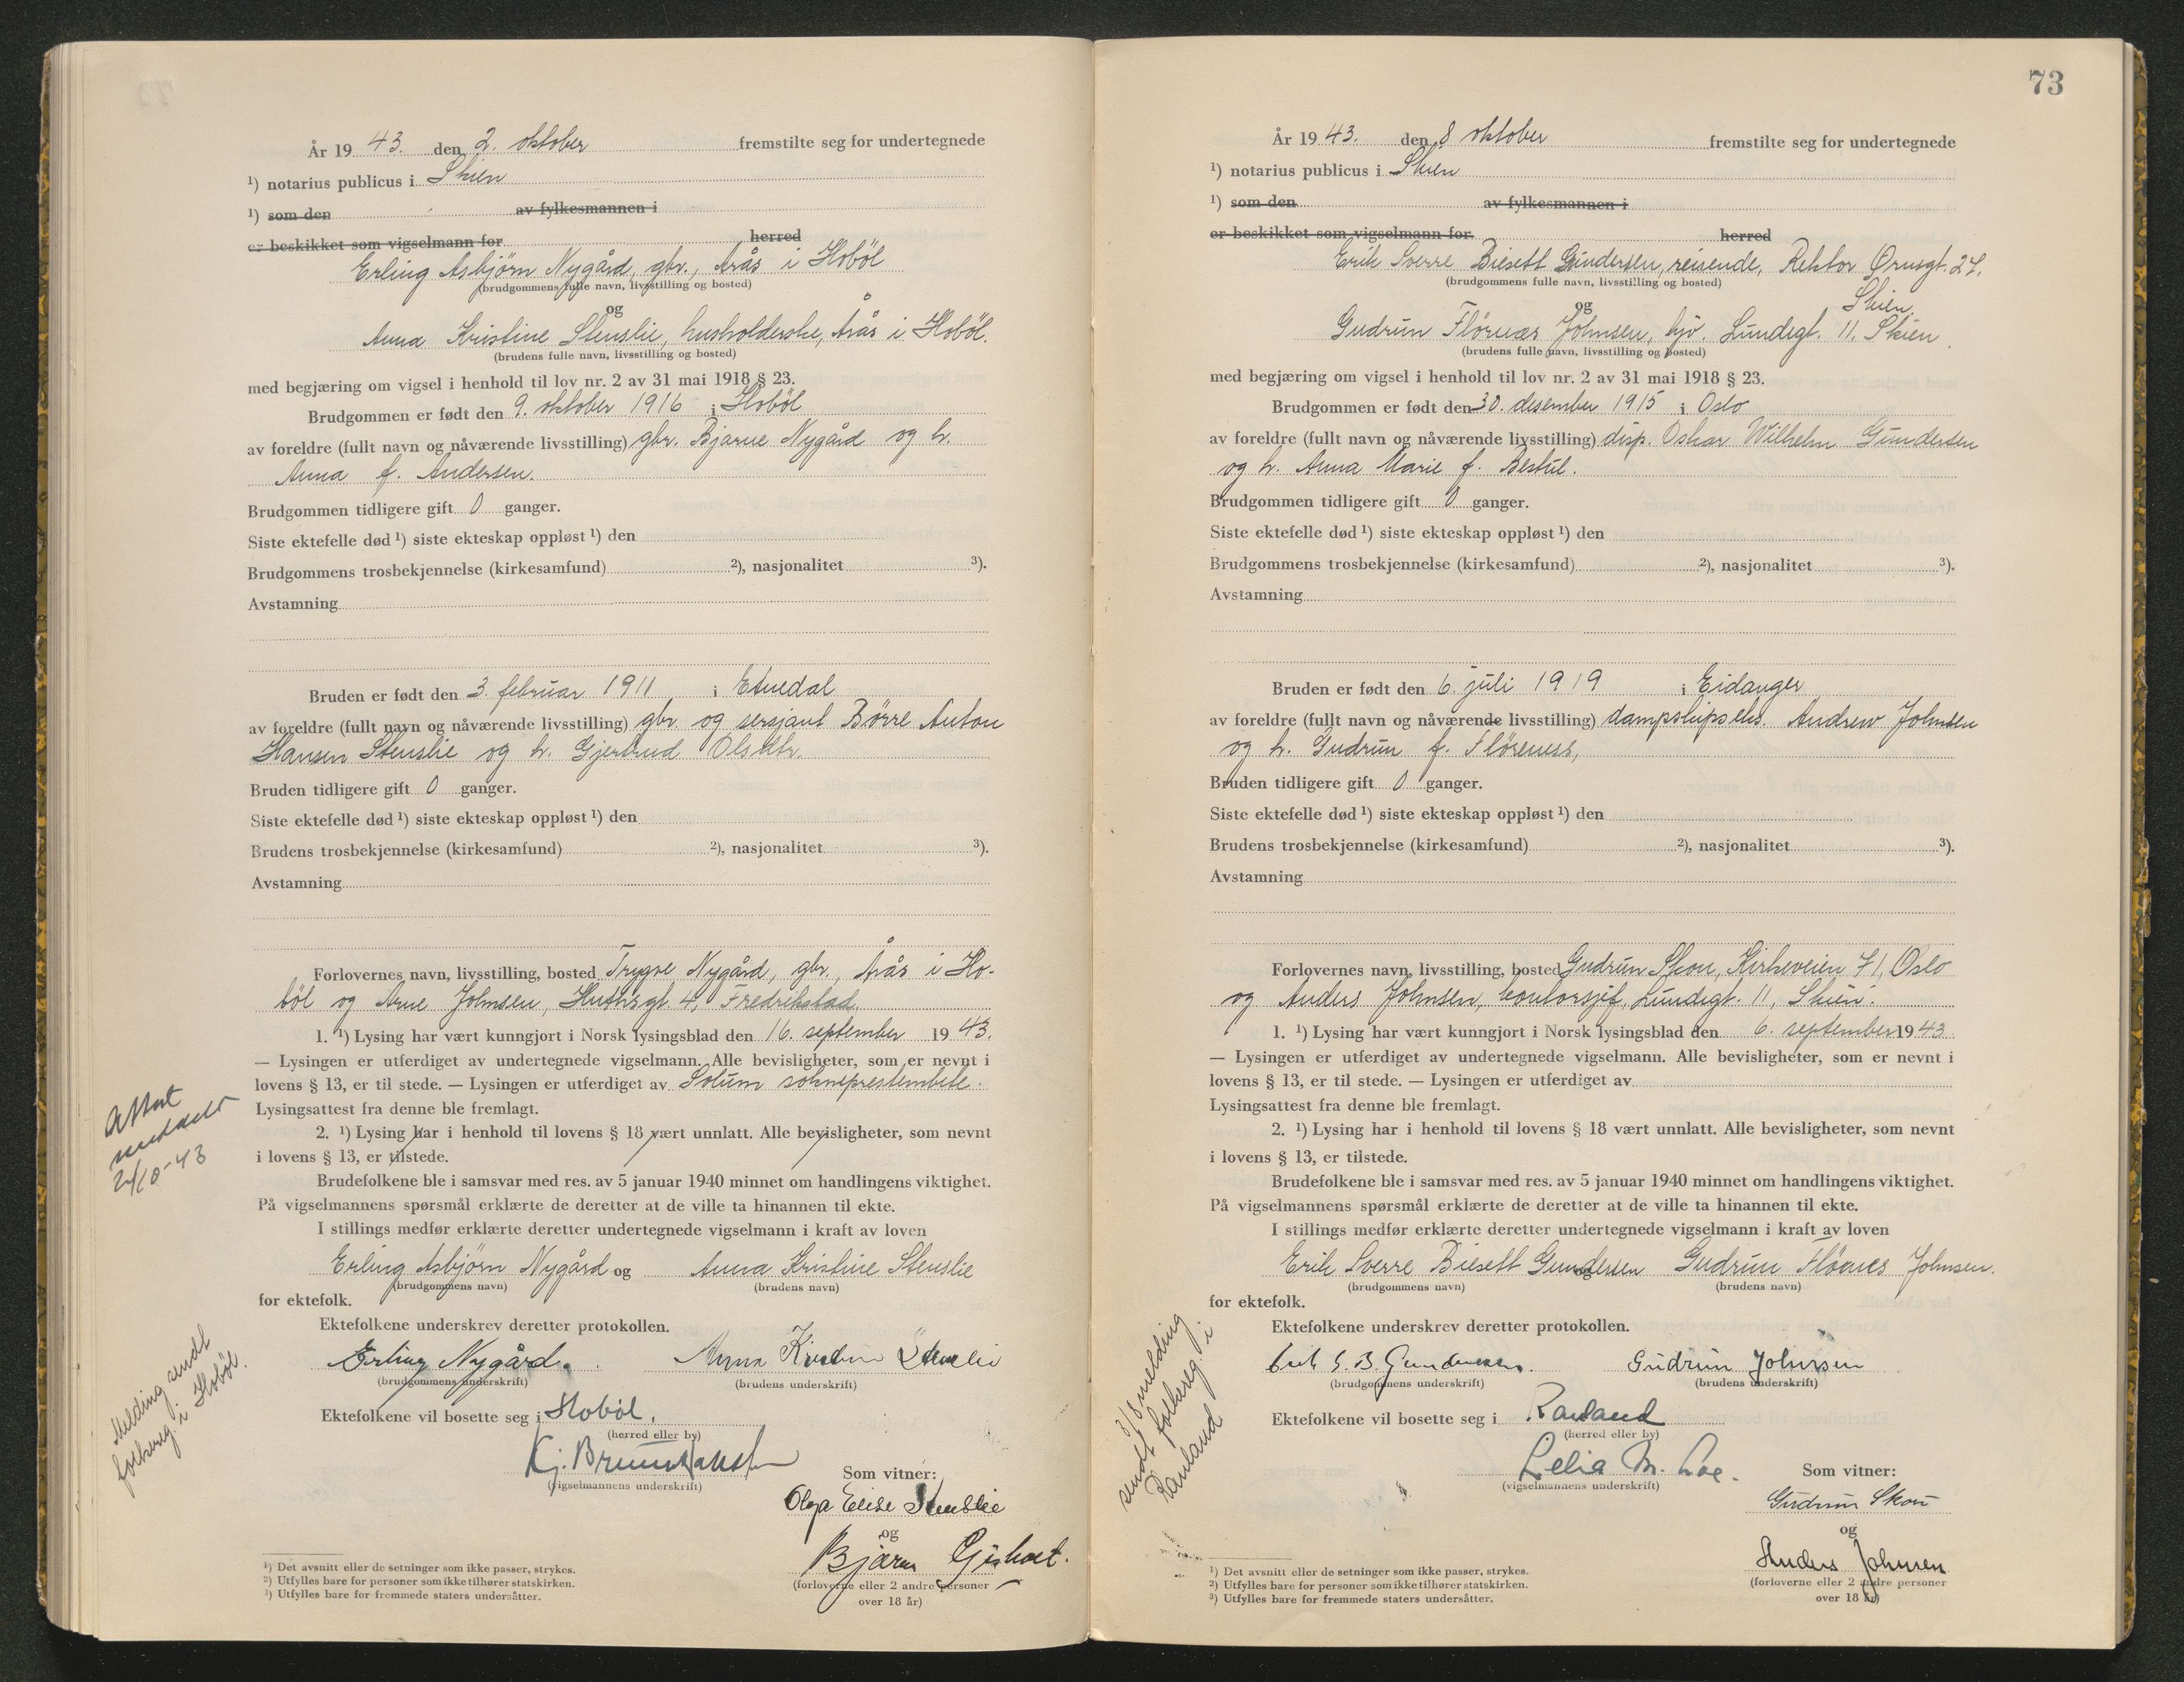 År 19 43. den 2. oktober fremstilte seg for undertegnede
¹) notarius publicus i Skien
¹) som den av fylkesmannen i
er beskikket som vigselmann for herred
Erling Asbjörn Nygård, gbr., Årås i Hoböl
(brudgommens fulle navn, livsstilling og bosted)
og
Anna Kristine Stenslie, husholderske, Årås i Hoböl.
(brudens fulle navn, livsstilling og bosted)
med begjæring om vigsel i henhold til lov nr. 2 av 31 mai 1918 § 23.
Brudgommen er født den 9. oktober 1916 i Hoböl
av foreldre (fullt navn og nåværende livsstilling) gbr. Bjarne Nygård og h.
Anna f. Andersen.
Brudgommen tidligere gift 0 ganger.
Siste ektefelle død ¹) siste ekteskap oppløst ¹) den
Brudgommens trosbekjennelse (kirkesamfund) ²), nasjonalitet ³).
Avstamning
Bruden er født den 3. februar 1911 i Etnedal
av foreldre (fullt navn og nåværende livsstilling) gbr. og sersjant Börre Anton
Hansen Stenslie og h. Gjertrud Olsdtr.
Bruden tidligere gift 0 ganger.
Siste ektefelle død ¹) siste ekteskap oppløst ¹) den
Brudens trosbekjennelse (kirkesamfund) ²), nasjonalitet ³).
Avstamning
Forlovernes navn, livsstilling, bosted Trygve Nygård, gbr., Årås i Ho-
böl og Arne Johnsen, 4, Fredrikstad
1. ¹) Lysing har vært kunngjort i Norsk lysingsblad den 16. september 19 43.
— Lysingen er utferdiget av undertegnede vigselmann. Alle bevisligheter, som er nevnt i
lovens § 13, er til stede. — Lysingen er utferdiget av Solum sokneprestembete.
Lysingsattest fra denne ble fremlagt.
2. ¹) Lysing har i henhold til lovens § 18 vært unnlatt. Alle bevisligheter, som nevnt
i lovens § 13, er tilstede.
Brudefolkene ble i samsvar med res. av 5 januar 1940 minnet om handlingens viktighet.
På vigselmannens spørsmål erklærte de deretter at de ville ta hinannen til ekte.
I stillings medfør erklærte deretter undertegnede vigselmann i kraft av loven
Erling Asbjörn Nygård og Anna Kristine Stenslie
(brudgommens navn) (brudens navn)
for ektefolk.
Ektefolkene underskrev deretter protokollen.
Erling Nygård. Anna Kristine Stenslie
(brudgommens underskrift) (brudens underskrift)
Ektefolkene vil bosette seg i Hobøl.
(herred eller by)
Kj.
(vigselmannens underskrift)
Som vitner:
Olga Elise Stenslie
og
Bjarne
(forloverne eller 2 andre personer
over 18 år)
¹) Det avsnitt eller de setninger som ikke passer, strykes.
²) Utfylles bare for personer som ikke tilhører statskirken.
³) Utfylles bare for fremmede staters undersåtter.
Attest
meddelt
2/10-43
Melding sendt
folkereg. i Hobøl.
73
År 19 43. den 8 oktober fremstilte seg for undertegnede
¹) notarius publicus i Skien
¹) som den av fylkesmannen i
er beskikket som vigselmann for herred
Erik Sverre Biesett Gundersen, reisende, Rektor Ørnsgt. 24,
(brudgommens fulle navn, livsstilling og bosted) Skien.
og
Gudrun Flörnæs Johnsen, hjv. Lundegt. 11, Skien.
(brudens fulle navn, livsstilling og bosted)
med begjæring om vigsel i henhold til lov nr. 2 av 31 mai 1918 § 23.
Brudgommen er født den 30. desember 1915 i Oslo
av foreldre (fullt navn og nåværende livsstilling) disp. Oskar Wilhelm Gundersen
og h. Anna Marie f. Bestul.
Brudgommen tidligere gift 0 ganger.
Siste ektefelle død ¹) siste ekteskap oppløst ¹) den
Brudgommens trosbekjennelse (kirkesamfund) ²), nasjonalitet ³).
Avstamning
Bruden er født den 6. juli 1919 i Eidanger
av foreldre (fullt navn og nåværende livsstilling) dampskipseks. Andrew Johnsen
og h. Gudrun f. Flöreness,
Bruden tidligere gift 0 ganger.
Siste ektefelle død ¹) siste ekteskap oppløst ¹) den
Brudens trosbekjennelse (kirkesamfund) ²), nasjonalitet ³).
Avstamning
Forlovernes navn, livsstilling, bosted Gudrun Skou, Kirkeveien 71, Oslo
og Anders Johnsen, kontorsjef, Lundegt. 11, Skien.
1. ¹) Lysing har vært kunngjort i Norsk lysingsblad den 6. september 19 43
— Lysingen er utferdiget av undertegnede vigselmann. Alle bevisligheter, som er nevnt i
lovens § 13, er til stede. — Lysingen er utferdiget av
Lysingsattest fra denne ble fremlagt.
2. ¹) Lysing har i henhold til lovens § 18 vært unnlatt. Alle bevisligheter, som nevnt
i lovens § 13, er tilstede.
Brudefolkene ble i samsvar med res. av 5 januar 1940 minnet om handlingens viktighet.
På vigselmannens spørsmål erklærte de deretter at de ville ta hinannen til ekte.
I stillings medfør erklærte deretter undertegnede vigselmann i kraft av loven
Erik Sverre Biesett Gundersen og Gudrun Flörnes Johnsen.
(brudgommens navn) (brudens navn)
for ektefolk.
Ektefolkene underskrev deretter protokollen.
Erik S. B. Gundersen. Gudrun Johnsen
(brudgommens underskrift) (brudens underskrift)
Ektefolkene vil bosette seg i Rauland
(herred eller by)
Lelia M. Loe.
(vigselmannens underskrift)
Som vitner:
Gudrun Skou
og
Anders Johnsen
(forloverne eller 2 andre personer
over 18 år)
¹) Det avsnitt eller de setninger som ikke passer, strykes.
²) Utfylles bare for personer som ikke tilhører statskirken.
³) Utfylles bare for fremmede staters undersåtter.
melding
sendt folkereg. i
Rauland